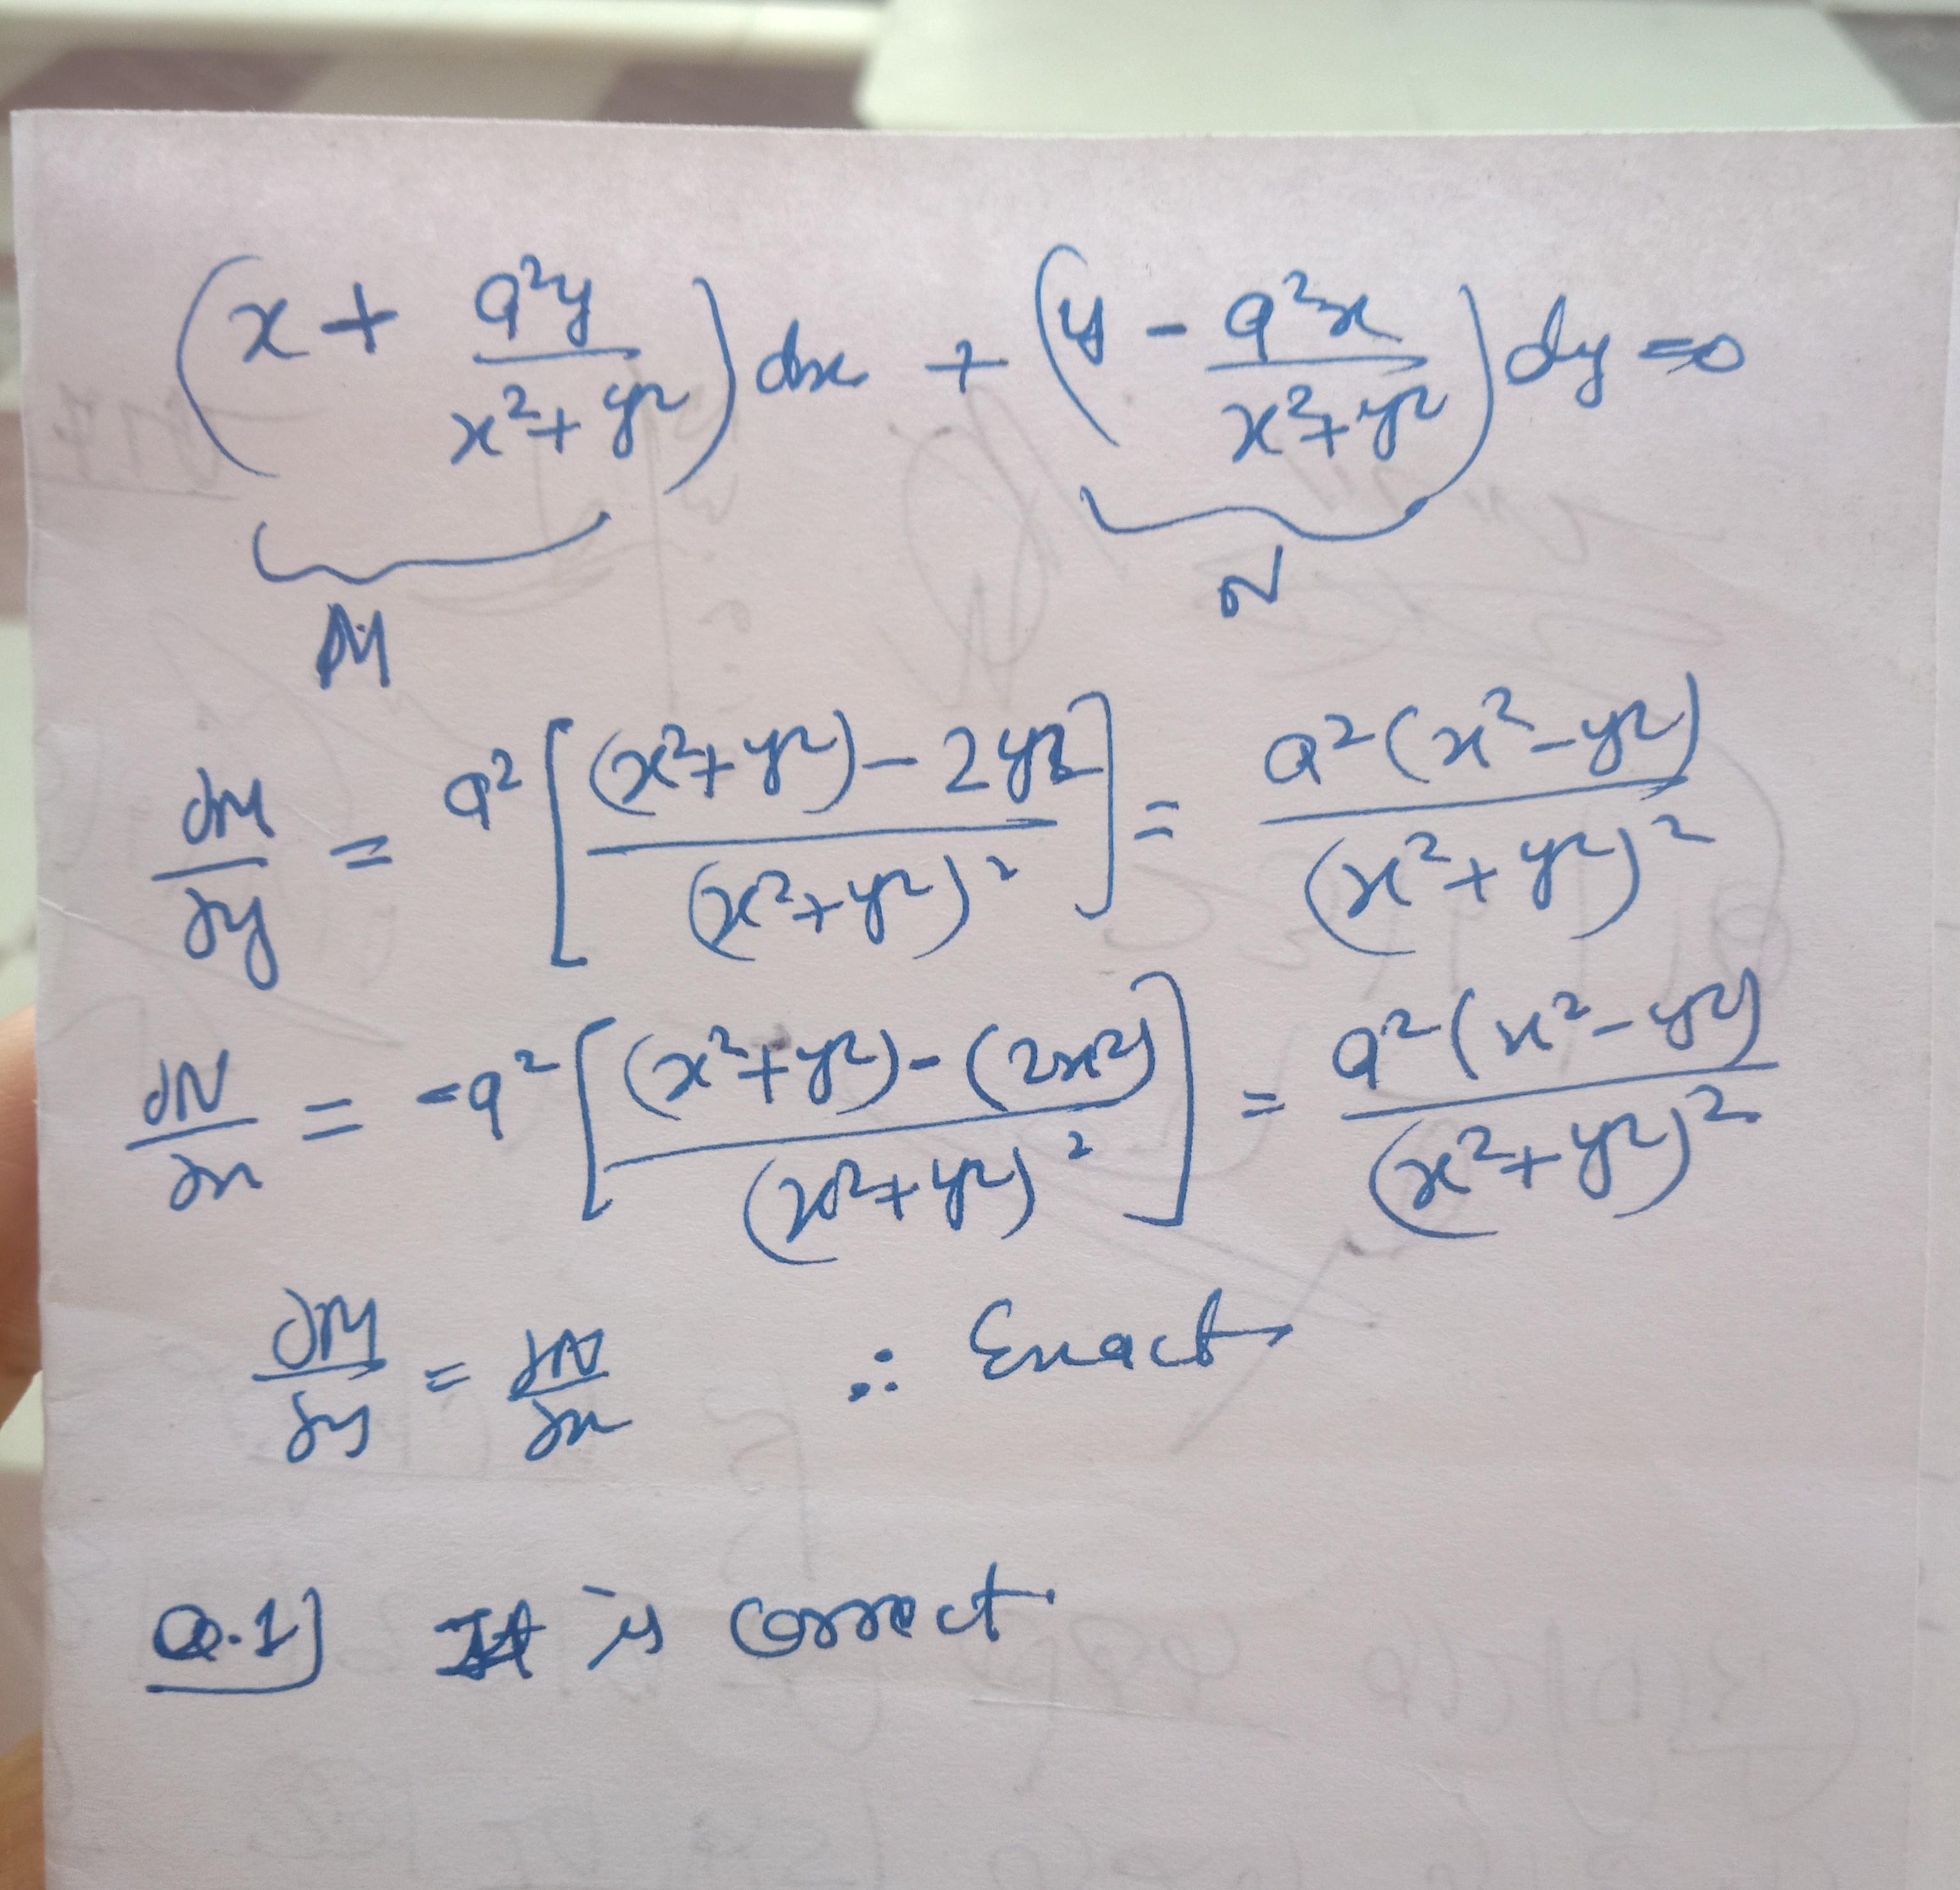 (x + a²y / x²+y²) dx + (y - a²x / x²+y²) dy = 0
M N
∂M/∂y = a² [ (x²+y²) - 2y² / (x²+y²)² ] = a²(x²-y²) / (x²+y²)²
∂N/∂x = -a² [ (x²+y²) - (2x²) / (x²+y²)² ] = a²(x²-y²) / (x²+y²)²
∂M/∂y = ∂N/∂x ∴ Exact
Q.1] It is correct